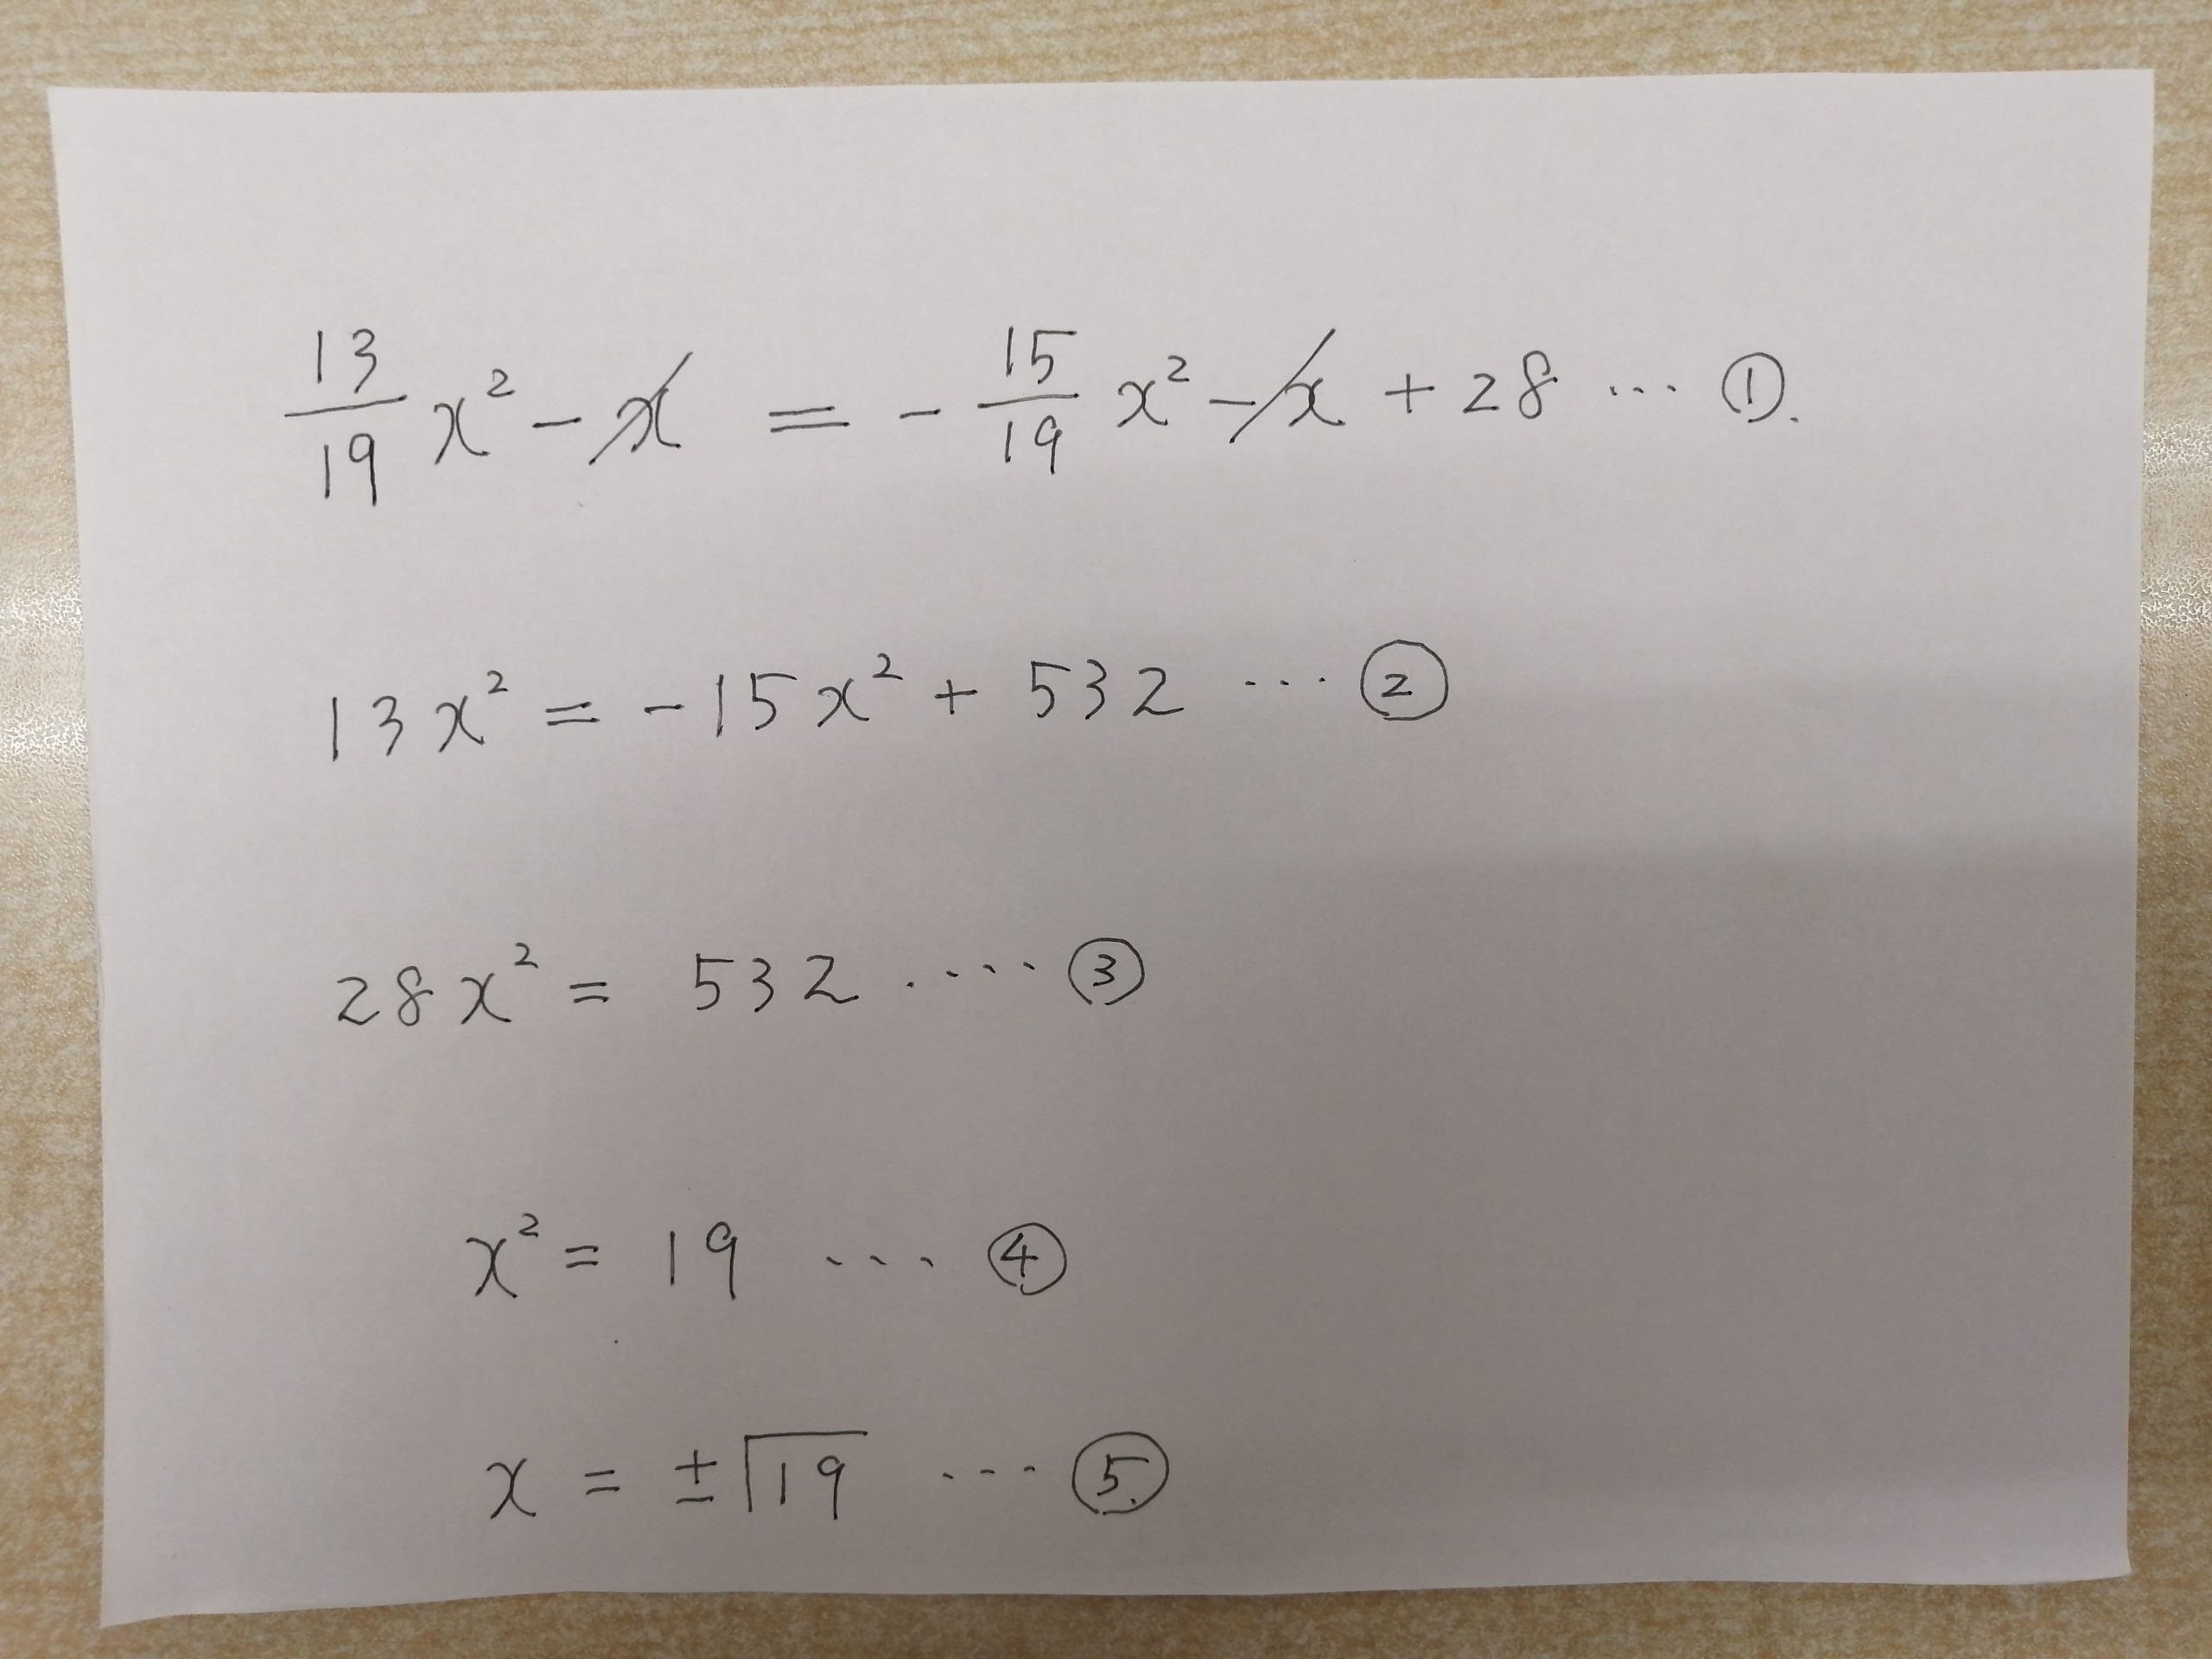 13/19 x² - x = - 15/19 x² - x + 28 ... ①.
13x² = -15x² + 532 ... ②
28x² = 532 .... ③
x² = 19 ... ④
x = ±√19 ... ⑤